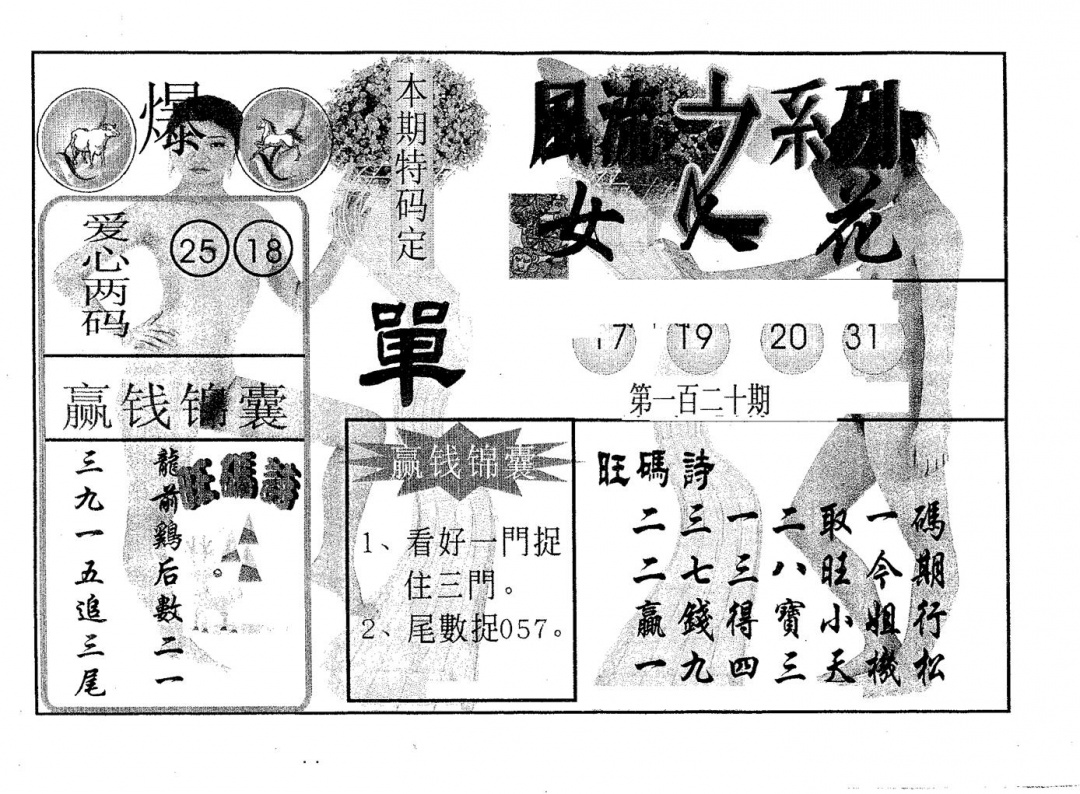 爆
本期特码定
單
爱心两码
25 18
赢钱锦囊
龍前鷄后數二一
三九一五追三尾
旺碼詩
風流之系列
女人花
17 19 20 31
第一百二十期
赢钱锦囊
1、看好一門捉
住三門。
2、尾數捉057。
旺碼詩
二三一二取一碼
二七三八旺今期
赢錢得寶小姐行
一九四三天機松